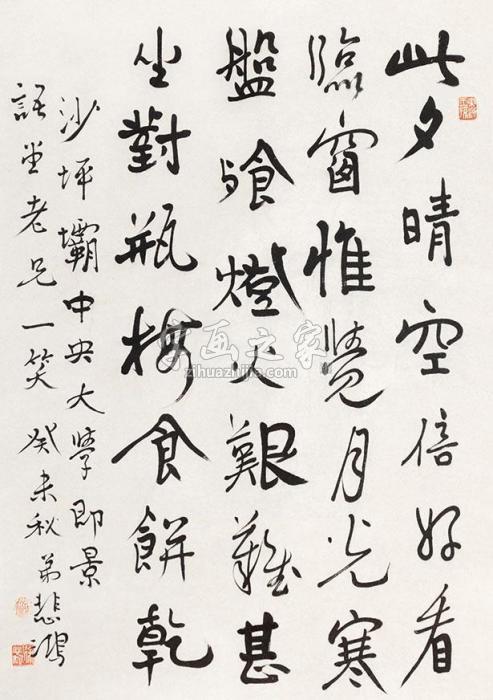 此夕晴空倍好看
臨窗惟覺月光寒
盤飧燈火艱難甚
坐對瓶梅食餅乾
沙坪壩中央大學即景
語堂老兄一笑 癸未秋 弟悲鴻
字画之家
zihuazhijia.com